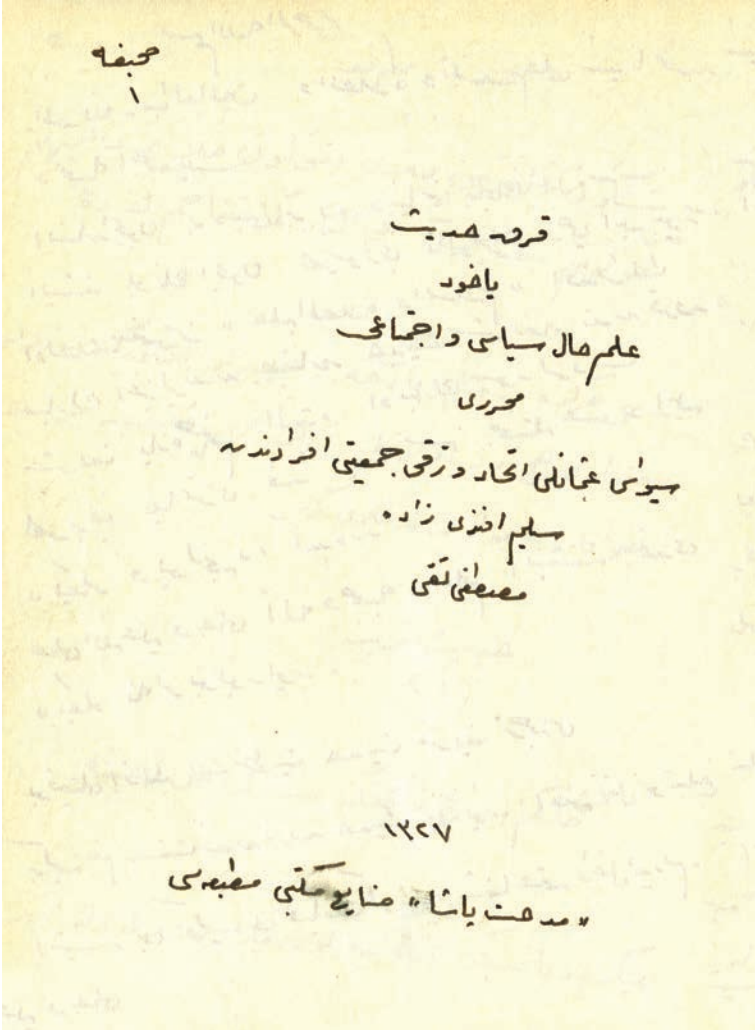 صحیفه
١
قرق حدیث
یاخود
علم حال سیاسی و اجتماعی
محرری
سیواس عثمانلی اتحاد و ترقی جمعیتی افرادندن
سلیم افندی زاده
مصطفی تقی
١٣٢٧
«مدحت پاشا» صنایع مكتبی مطبعه‌سی